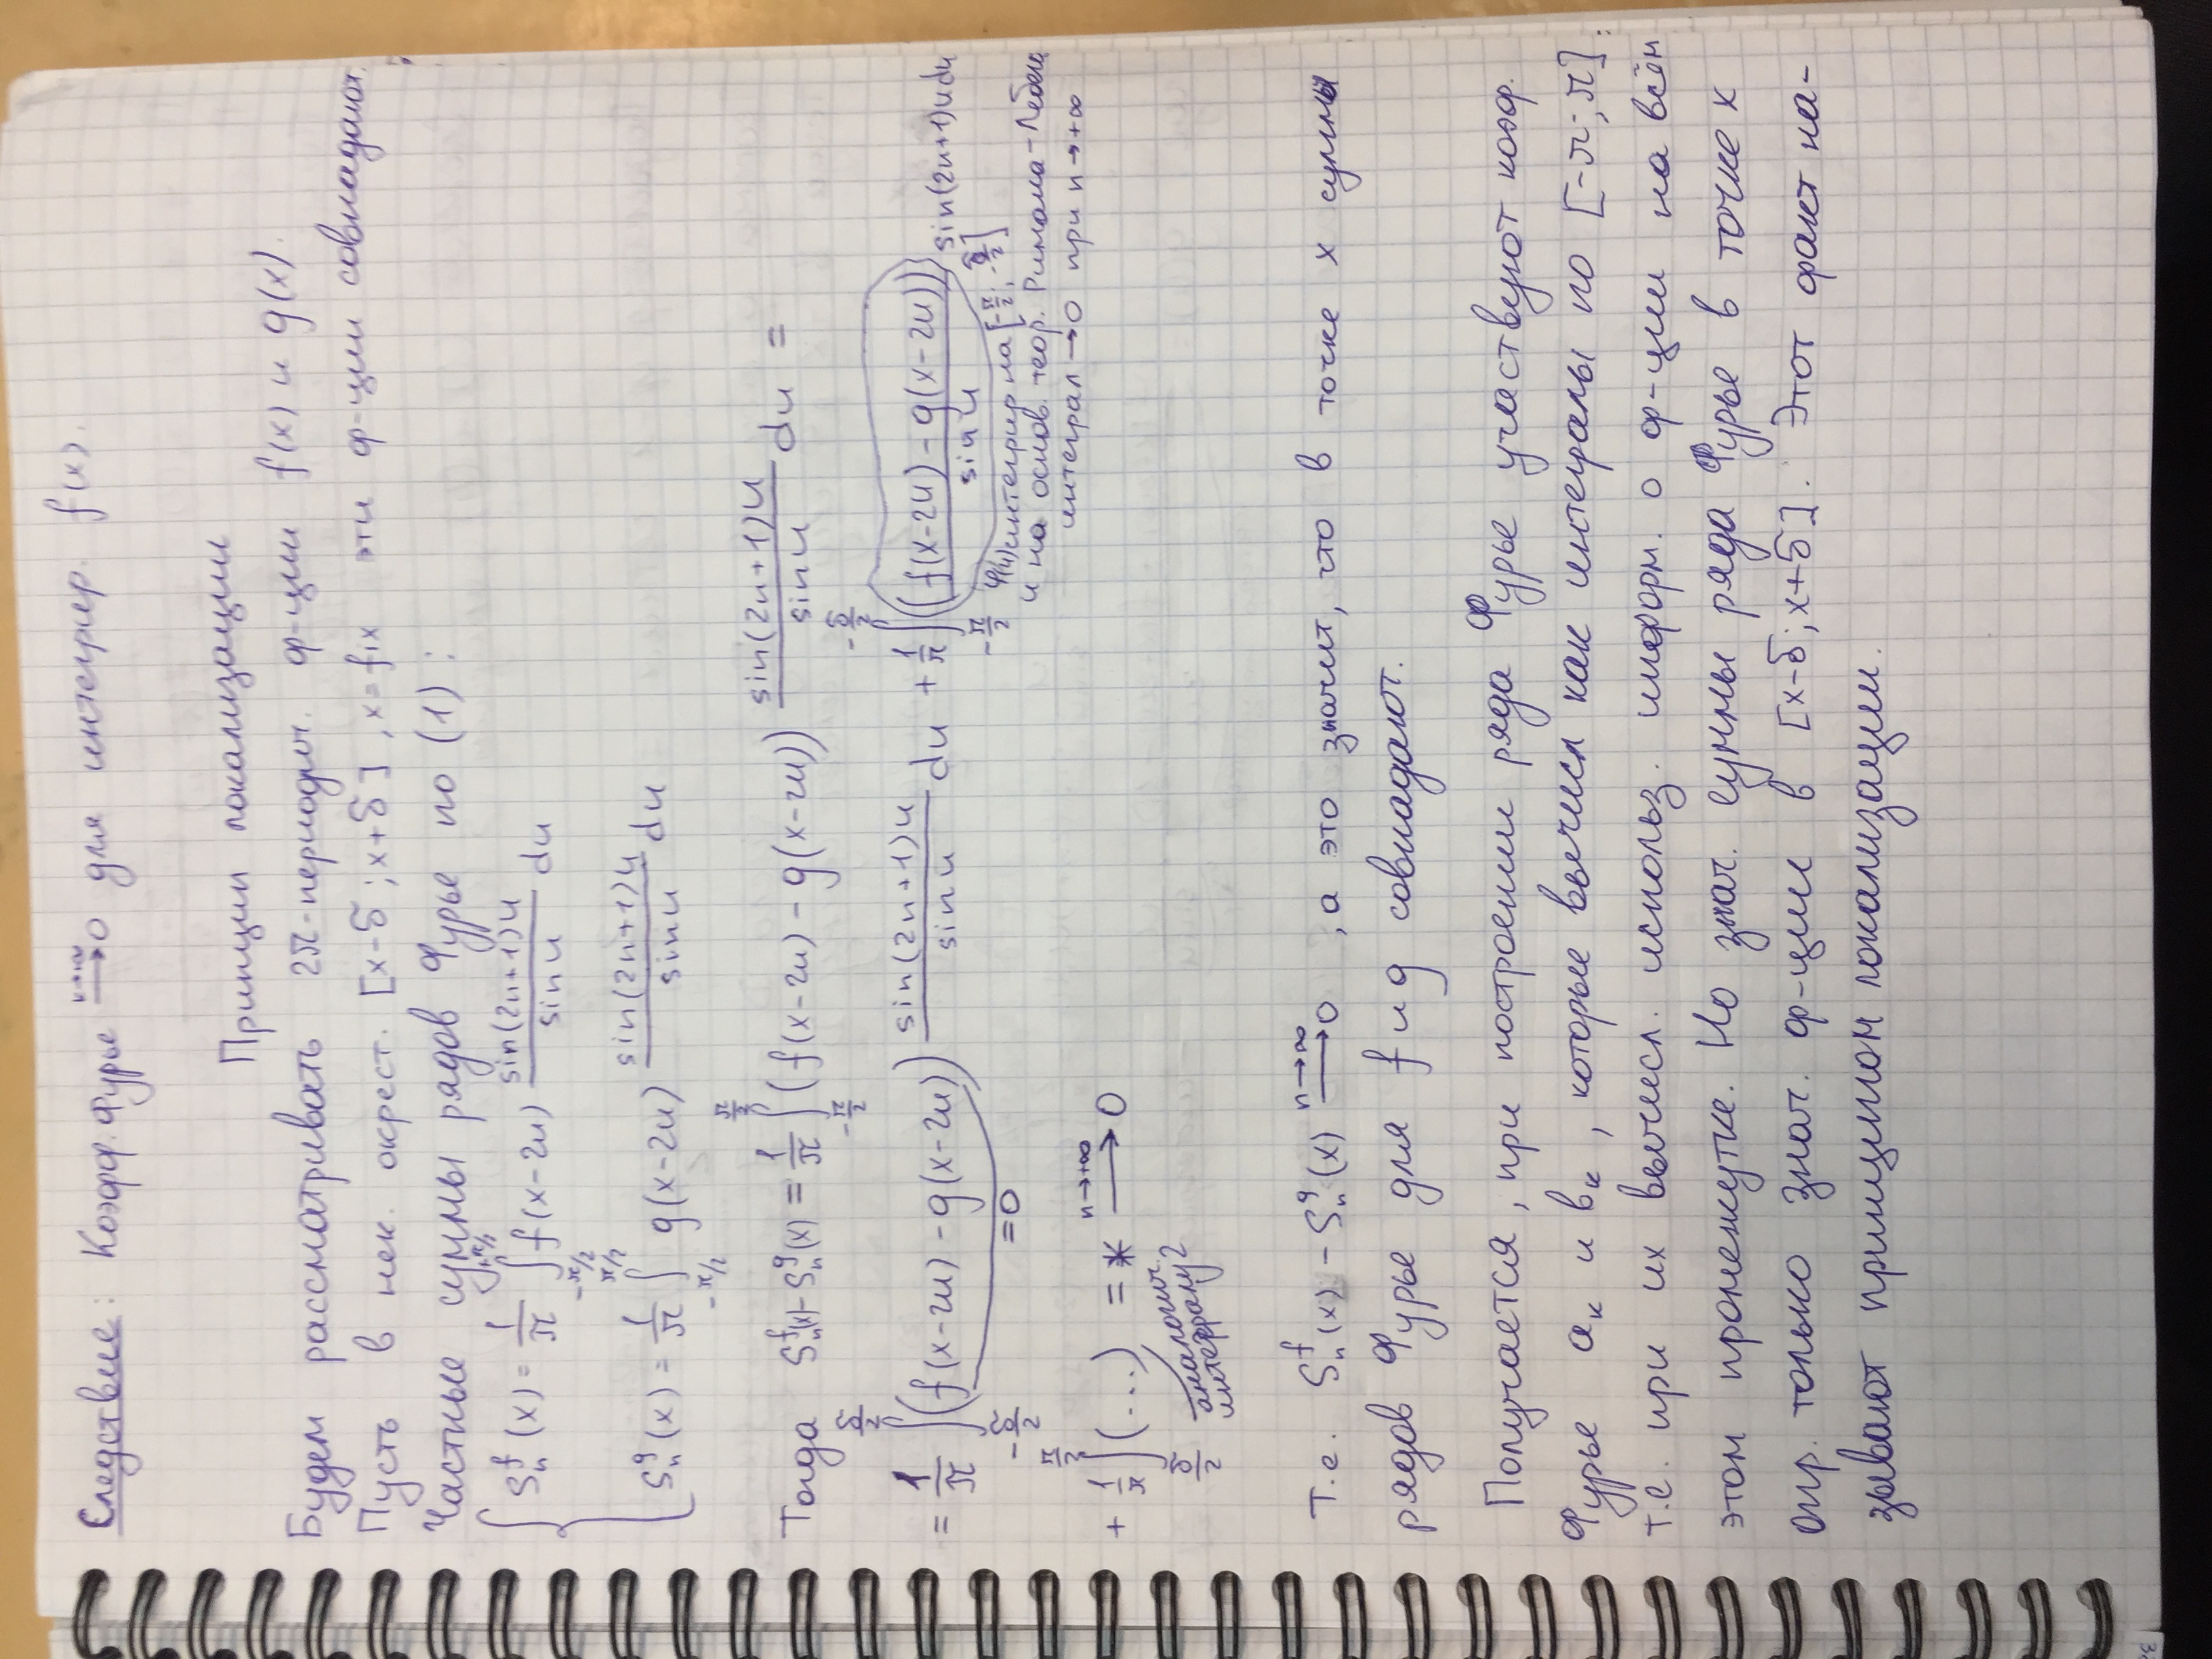 Следствие: Коэфф. Фурье →0 для интегрир. f(x).
Принцип локализации
Будем рассматривать 2π-периодич. ф-ции f(x) и g(x).
Пусть в нек. окрест. [x-δ; x+δ], x=fix эти ф-ции совпадают.
Частные суммы рядов Фурье по (1):
S_n^f(x) = 1/π ∫_{-π/2}^{+π/2} f(x-2u) sin(2n+1)u / sin u du
S_n^g(x) = 1/π ∫_{-π/2}^{π/2} g(x-2u) sin(2n+1)u / sin u du
Тогда S_n^f(x) - S_n^g(x) = 1/π ∫_{-π/2}^{π/2} (f(x-2u) - g(x-2u)) sin(2n+1)u / sin u du =
= 1/π ∫_{-δ/2}^{δ/2} (f(x-2u) - g(x-2u)) sin(2n+1)u / sin u du + 1/π ∫_{-π/2}^{-δ/2} ((f(x-2u) - g(x-2u)) / sin u) sin(2n+1)u du
=0
φ(u) интегрир на [-π/2; -δ/2]
и на основ. теор. Римана-Лебега
интеграл → 0 при n→+∞
+ 1/π ∫_{δ/2}^{π/2} (...) = * →^{n→+∞} 0
аналогич.
интегралу 2
Т.е. S_n^f(x) - S_n^g(x) →^{n→∞} 0, а это значит, что в точке x суммы
рядов Фурье для f и g совпадают.
Получается, при построении ряда Фурье участвуют коэф.
Фурье a_k и b_k, которые вычисл как интегралы по [-π; π],
т.е. при их вычисл. использ. информ. о ф-ции на всём
этом промежутке. Но знач. суммы ряда Фурье в точке x
опр. только знач. ф-ции в [x-δ; x+δ]. Этот факт на-
зывают принципом локализации.